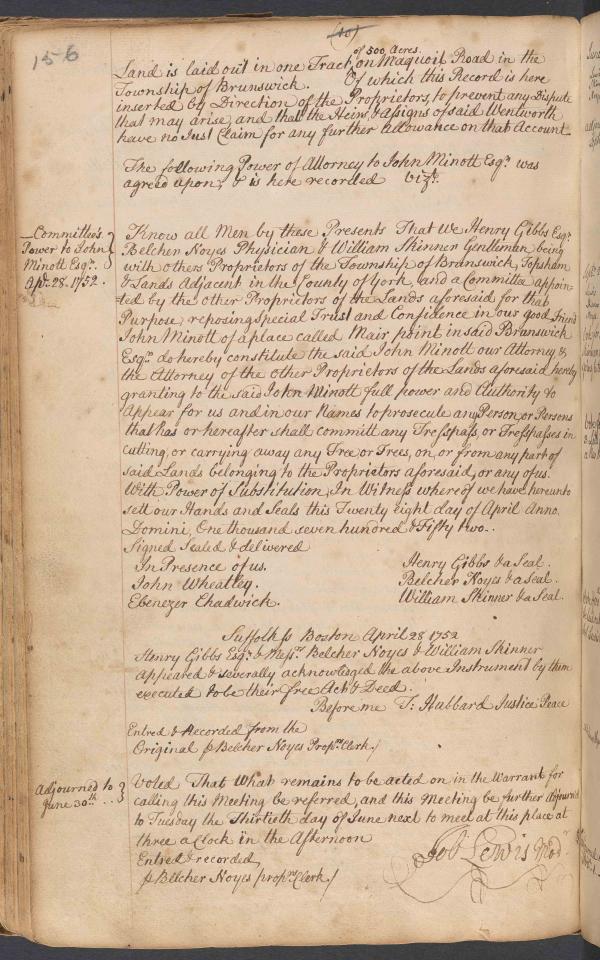 156
(10)
of 500 Acres.
Land is laid out in one Tract, on Maquoit Road in the
Township of Brunswick. Of which this Record is here
inserted by Direction of the Proprietors, to prevent any Dispute
that may arise, and that the Heirs, & Assigns of said Wentworth
have no Just Claim for any further Allowance on that Account
The following Power of Attorney to John Minott Esqr. was
agreed upon, & is here recorded Vizt.
Committee's
Power to John
Minott Esqr.
Apr. 28. 1752.
Know all Men by these Presents That We Henry Gibbs Esqr.
Belcher Noyes Physician & William Skinner Gentleman being
with others Proprietors of the Township of Brunswick, Topsham
& Lands Adjacent in the County of York, and a Committee appoin-
ted by the other Proprietors of the Lands aforesaid for that
Purpose, reposing Special Trust and Confidence in our good Friend
John Minott of a place called Mair point in said Brunswick
Esqr. do hereby constitute the said John Minott our Attorney &
the Attorney of the other Proprietors of the Lands aforesaid hereby
granting to the said John Minott full power and Authority to
Appear for us and in our Names to prosecute any Person or Persons
that has or hereafter shall committ any Tresspass, or Tresspasses in
cutting, or carrying away any Tree or Trees, on, or from any part of
said Lands belonging to the Proprietors aforesaid, or any of us.
With Power of Substitution, In Witness whereof we have hereunto
sett our Hands and Seals this Twenty eight day of April Anno.
Domini, One thousand seven hundred & Fifty two.
Signed Sealed & delivered
In Presence of us. Henry Gibbs & a Seal.
John Wheatley. Belcher Noyes & a Seal.
Ebenezer Chadwick. William Skinner & a Seal.
Suffolk ss Boston April 28 1752
Henry Gibbs Esqr. & Messrs. Belcher Noyes & William Skinner
Appeared & severally acknowledged the above Instrument by them
executed to be their free Act & Deed.
Before me T: Hubbard Justice Peace
Entred & Recorded from the
Original p Belcher Noyes Proprs. Clerk./
Adjourned to
June 30th ...
Voted That What remains to be acted on in the Warrant for
calling this Meeting be referred, and this Meeting be further Adjourned
to Tuesday the Thirtieth day of June next to meet at this place at
three a Clock in the Afternoon
Entred & recorded, Job Lewis Modr.
p Belcher Noyes proprs. Clerk./